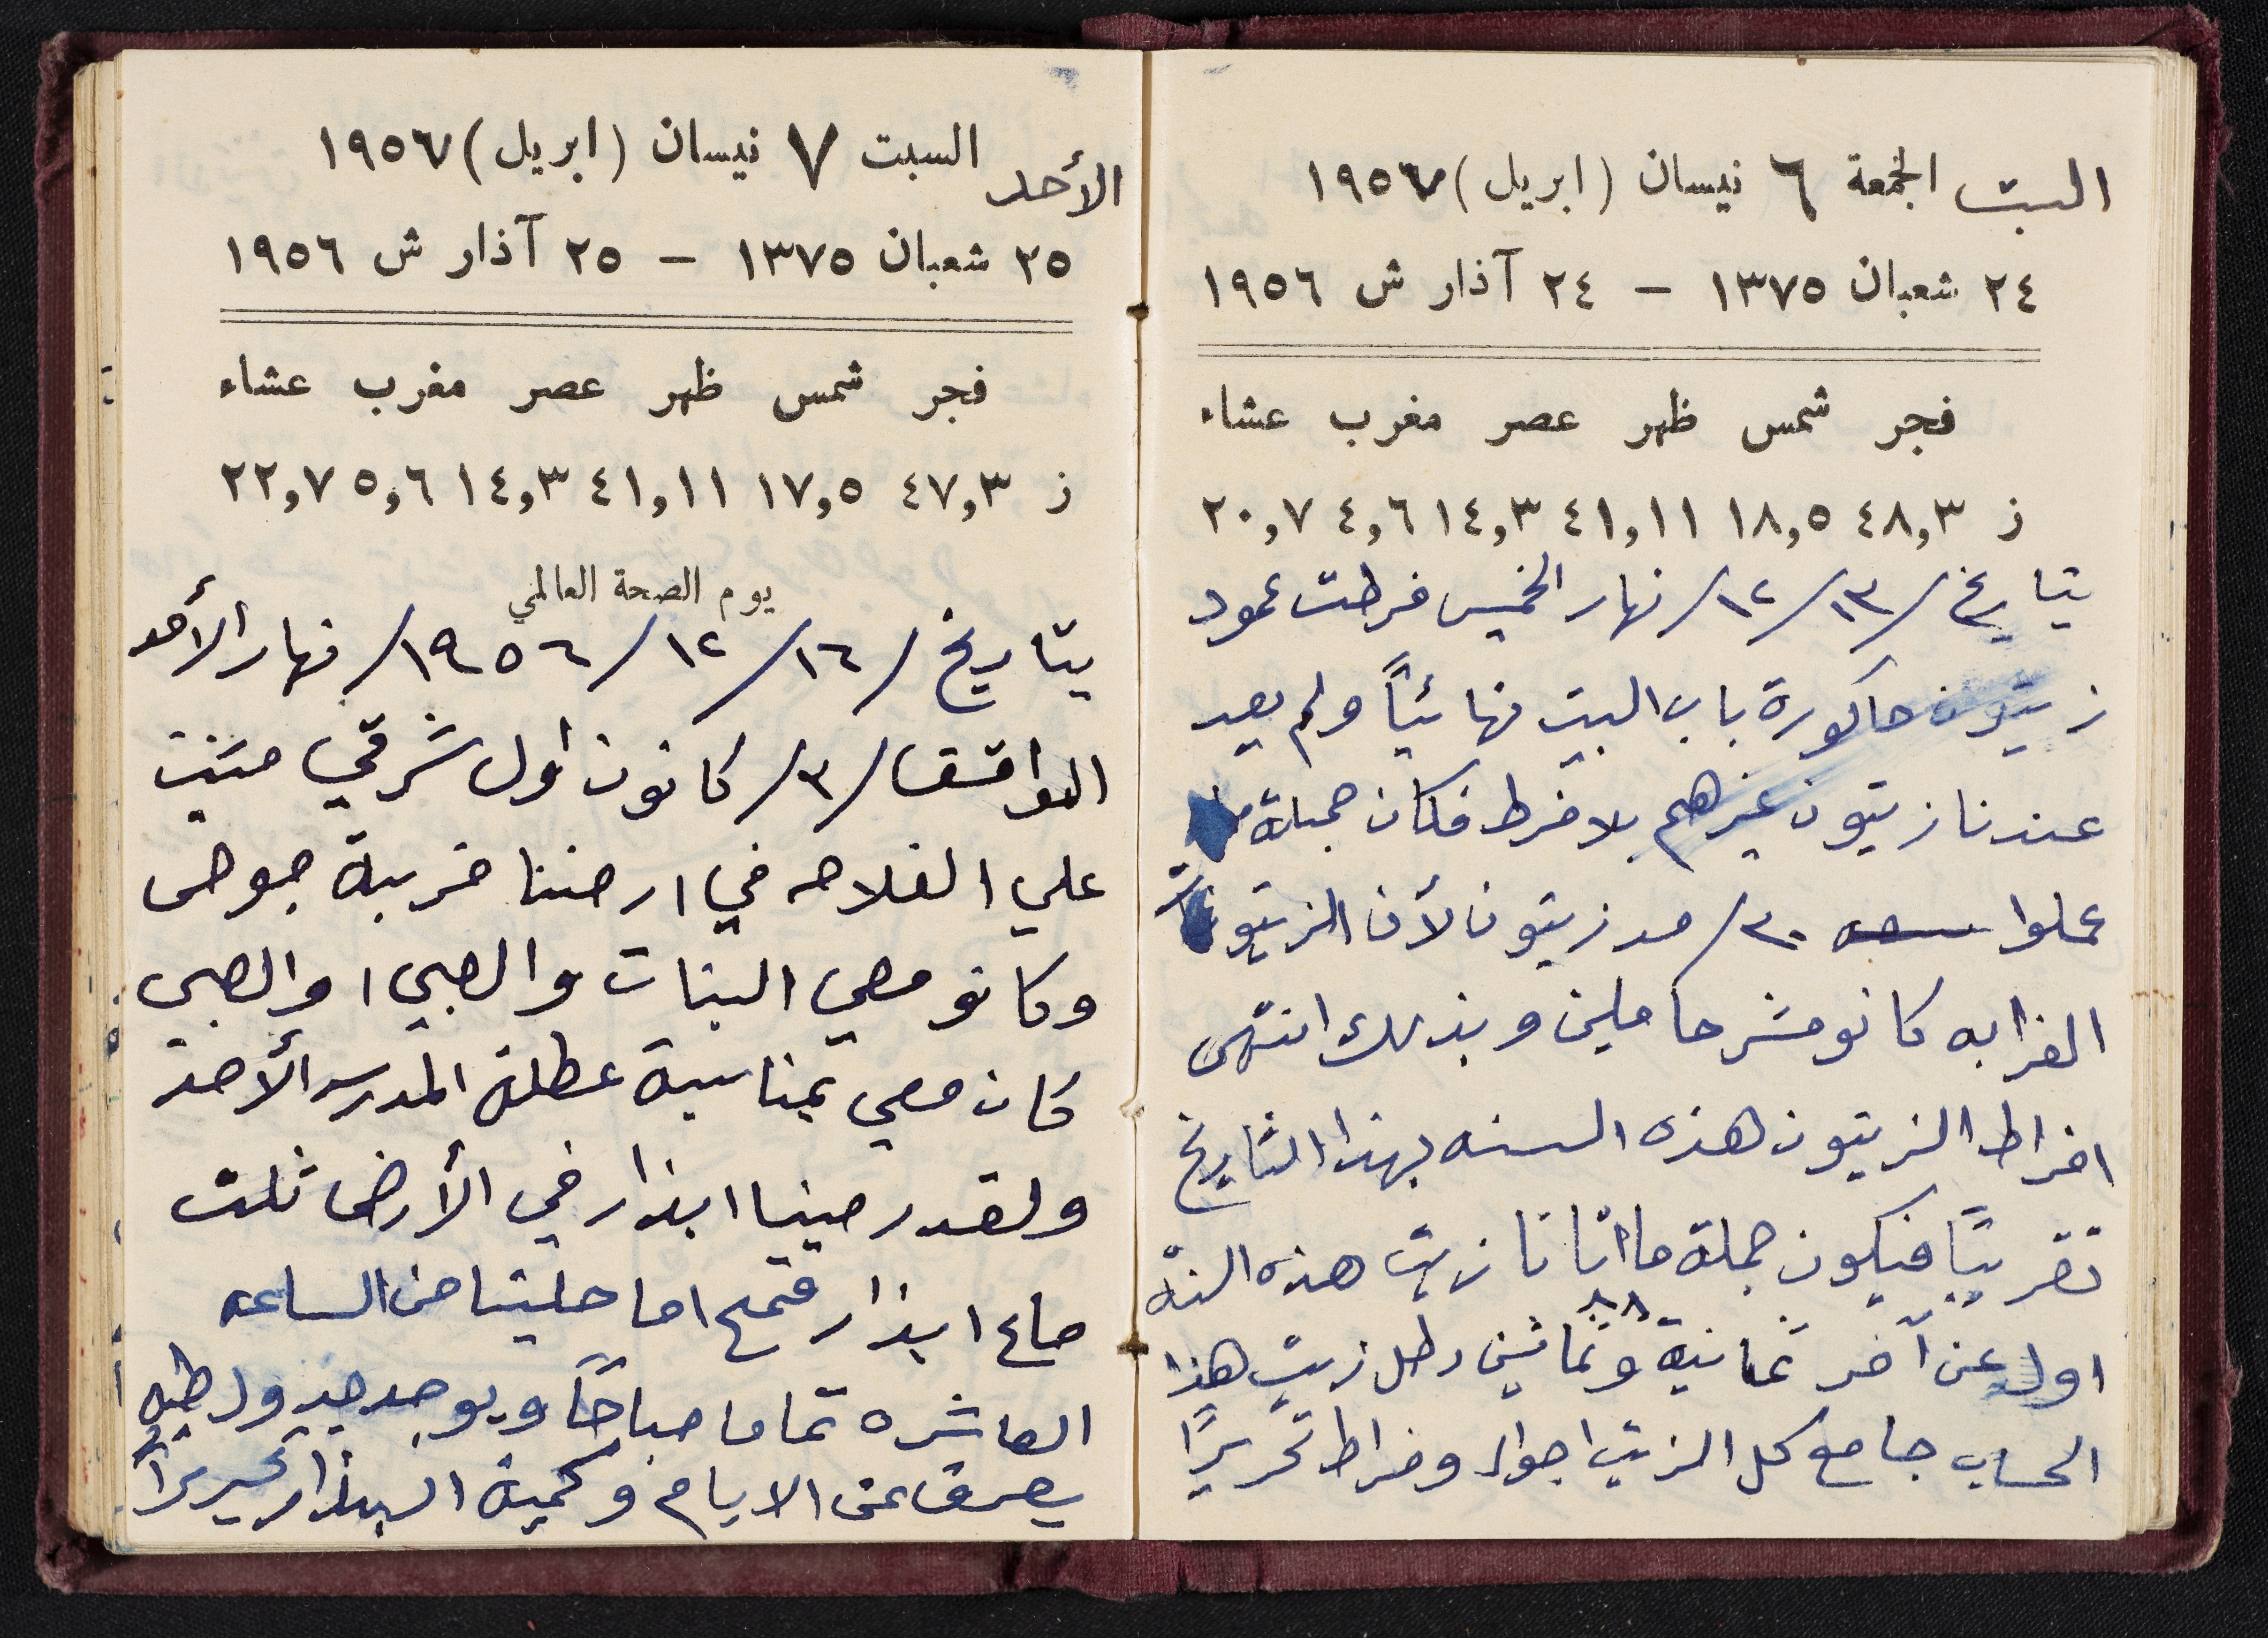 السبت الجمعة ٦ نيسان (ابريل) ١٩٥٧
٢٤ شعبان ١٣٧٥ – ٢٤ آذار ش ١٩٥٦
فجر شمس ظهر عصر مغرب عشاء
ز ٤٨,٣ ١٨,٥ ٤١,١١ ١٤,٣ ٤,٦ ٢٠,٧
بتاريخ /١٣/١٢/ نهار الخميس فرطت عمود
زيتون حاكورة باب البيت نهائياً ولم يعد
عندنا زيتون غيرهم بلا فرط فكان جملة ما
عملوا ٣٠/ مد زيتون لأن الزيتونات
الغرابه كانو مش حاملين وبذلك انتهى
افراط الزيتون هذه السنه بهذا التاريخ
تقريبًا فيكون جملة ما اتانا زيت هذه السنة
٨٨
اول عن آخر ثمانية وثمانين رطل زيت هذا
الحساب جامع كل الزيت اجوال وفراط تحريرًا
الأحد السبت ٧ نيسان (ابريل) ١٩٥٧
٢٥ شعبان ١٣٧٥ – ٢٥ آذار ش ١٩٥٦
فجر شمس ظهر عصر مغرب عشاء
ز ٤٧,٣ ١٧,٥ ٤١,١١ ١٤,٣ ٥,٦ ٢٢,٧
يوم الصحة العالمي
بتاريخ /١٦/١٢/١٩٥٦/ نهار الأحد
الموافق /٣/ كانون اول شرقي
علي الفلاحه في ارضنا خربة جوحى
وكانو معي البنات والصبي والصبي
كان معي بمناسبة عطلة المدرسه الأحد
ولقد رمينا ابذار في الأرض ثلث
صاع ابذار قمح اما حلينا من الساعه
العاشره تماما صباحًا ويوجد جدول
يعرف عن الايام وكمية البذار تحريراً